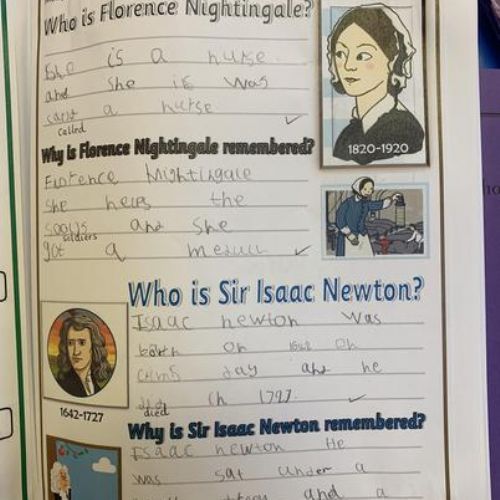 Who is Florence Nightingale?
She is a nurse.
and she is was
a nurse
called
Why is Florence Nightingale remembered?
1820-1920
Florence Nightingale
She helps the
soldiers
and she
got a
Who is Sir Isaac Newton?
Isaac newton was
on on
day and he
in 1797.
died
1642-1727
Why is Sir Isaac Newton remembered?
Isaac newton He
was sat under a
and a